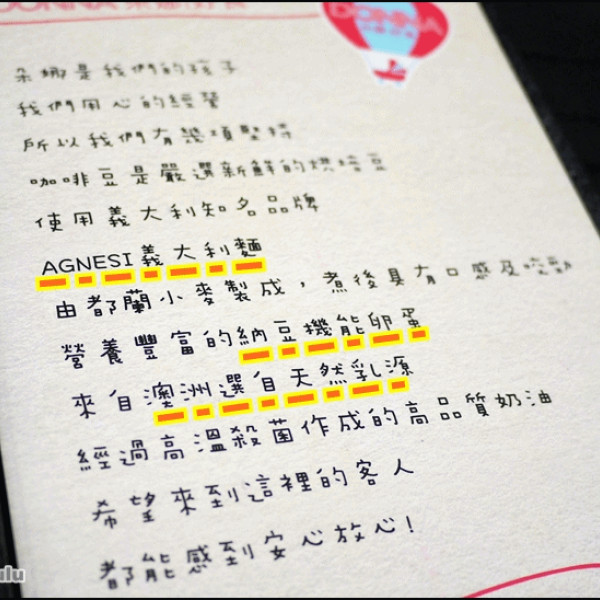 DONNA
DONNA
朵娜是我們的孩子
我們用心的經營
所以我們有幾項堅持
咖啡豆是嚴選新鮮的烘培豆
使用義大利知名品牌
AGNESI義大利麵
由都蘭小麥製成，煮後具有口感及咬勁
營養豐富的納豆機能卵蛋
來自澳洲選自天然乳源
經過高溫殺菌作成的高品質奶油
希望來到這裡的客人
都能感到安心放心!